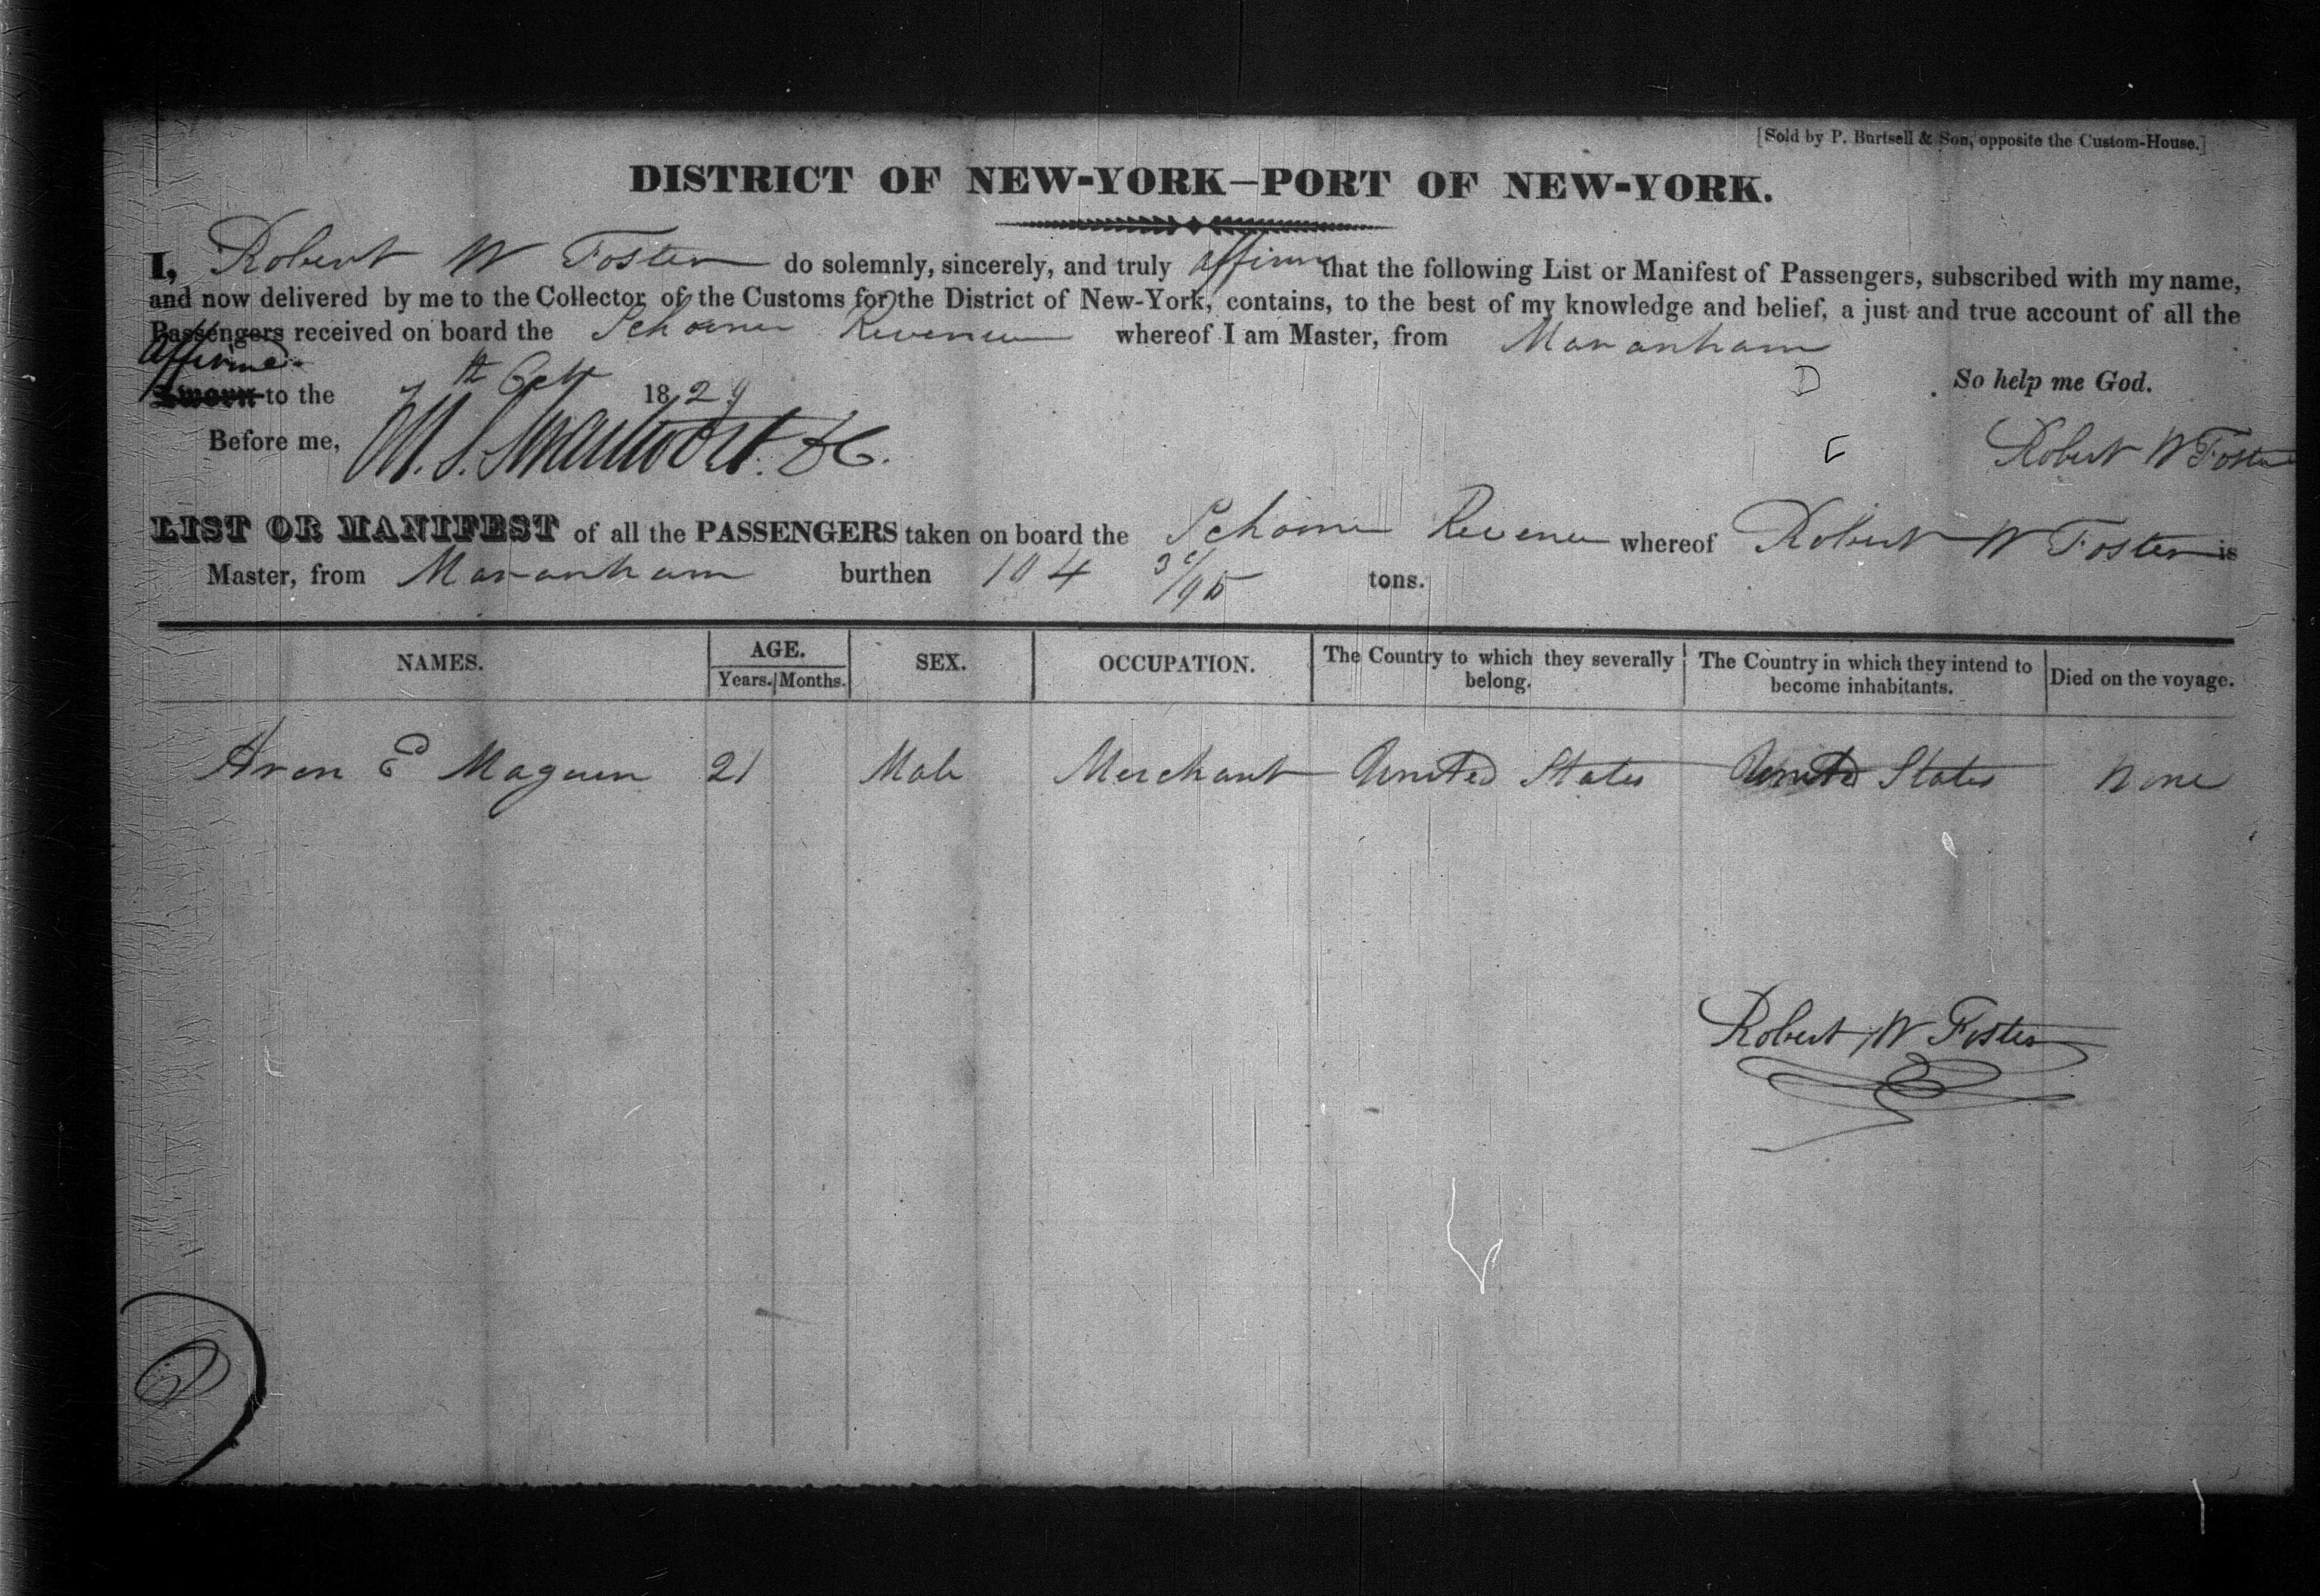 [Sold by P. Burtsell & Son, opposite the Custom-House.]
DISTRICT OF NEW-YORK—PORT OF NEW-YORK.
I, Robert W Foster do solemnly, sincerely, and truly affirm that the following List or Manifest of Passengers, subscribed with my name,
and now delivered by me to the Collector of the Customs for the District of New-York, contains, to the best of my knowledge and belief, a just and true account of all the
Passengers received on board the Schooner Revenue whereof I am Master, from Maranham
Affirmed
Sworn to the 7th Oct 1829 So help me God.
Before me, M. S. Swartwout. DC. Robert W Foster
LIST OR MANIFEST of all the PASSENGERS taken on board the Schooner Revenue whereof Robert W Foster is
Master, from Maranham burthen 104 /95 tons.
NAMES. AGE. Years. Months. SEX. OCCUPATION. The Country to which they severally belong. The Country in which they intend to become inhabitants. Died on the voyage.
E Maguen 21 Male Merchant United States United States None
Robert W Foster